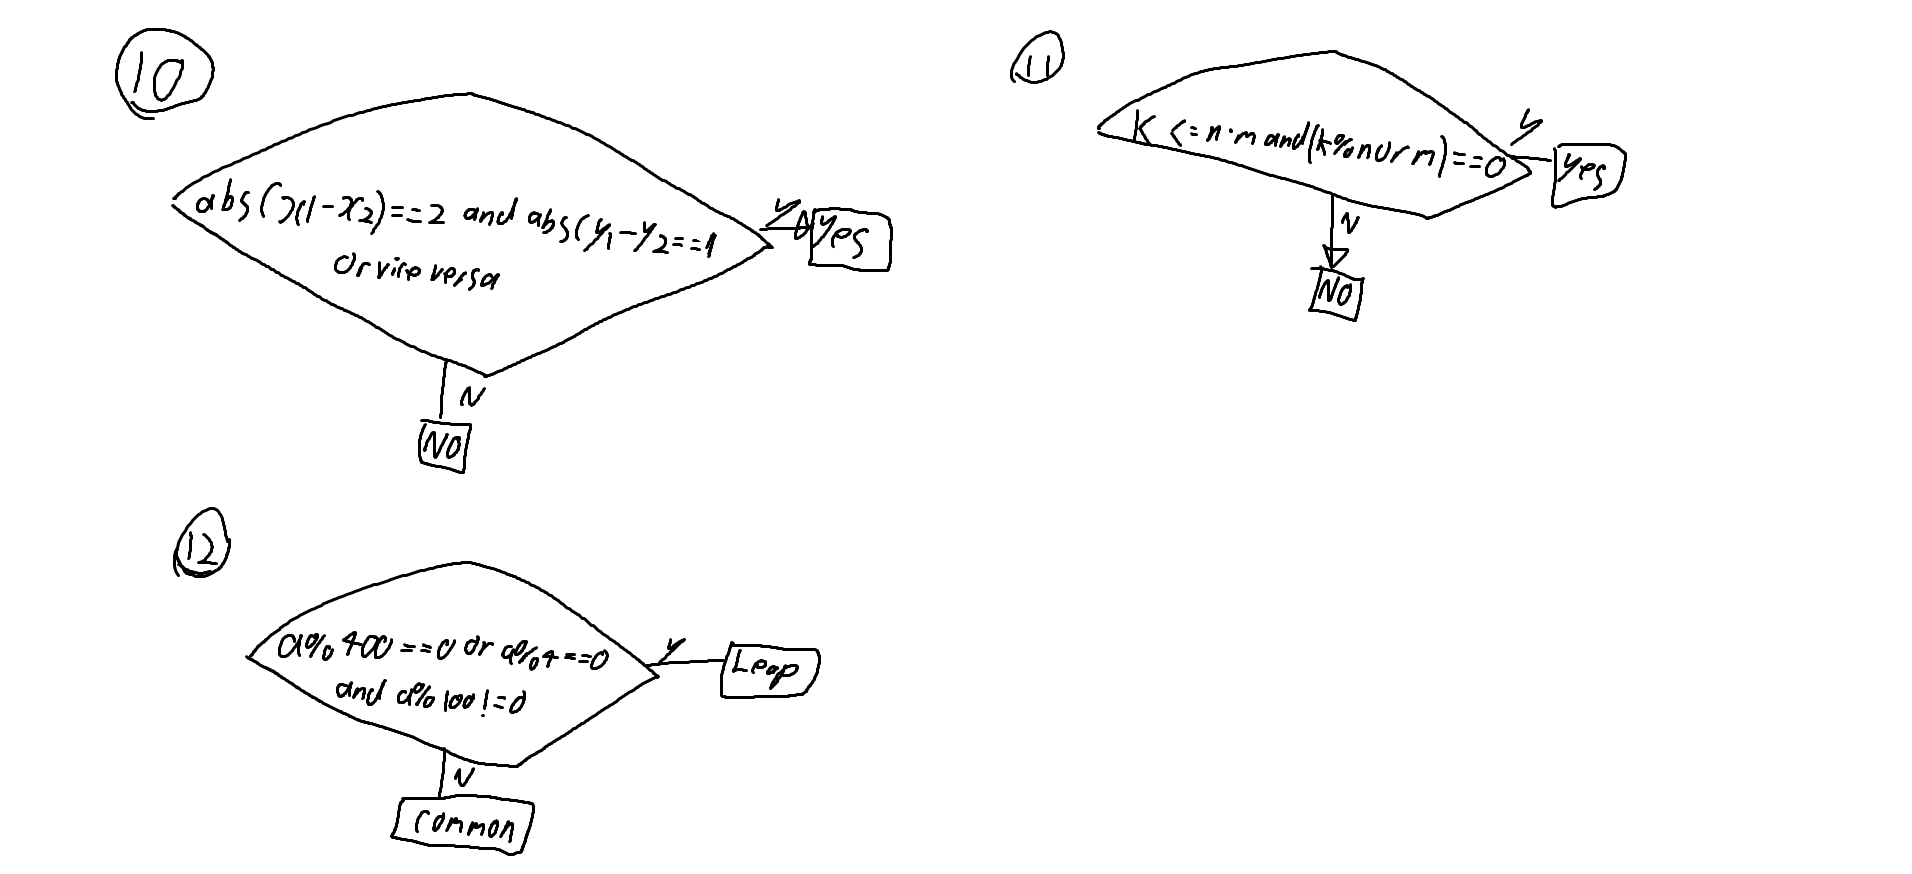 10
abs(x1-x2)==2 and abs(y1-y2==1
or vice versa
Y
Yes
N
NO
11
K <= n·m and (k%n or m)==0
Y
Yes
N
NO
12
a%400==0 or a%4==0
and a%100!=0
Y
Leap
N
common